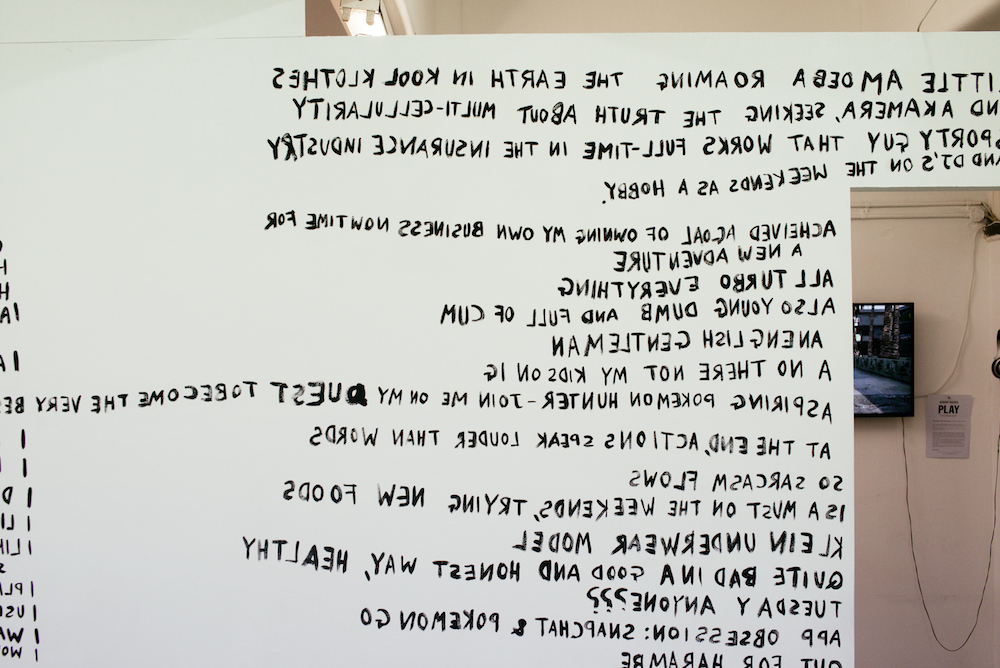 LITTLE AMOEBA ROAMING THE EARTH IN KOOL KLOTHES
ND A KAMERA, SEEKING THE TRUTH ABOUT MULTI-CELLULARITY
SPORTY GUY THAT WORKS FULL-TIME IN THE INSURANCE INDUSTRY
AND DJ'S ON THE WEEKENDS AS A HOBBY.
ACHEIVED A GOAL OF OWNING MY OWN BUSINESS NOW TIME FOR
A NEW ADVENTURE
ALL TURBO EVERYTHING
ALSO YOUNG DUMB AND FULL OF CUM
AN ENGLISH GENTLEMAN
A NO THERE NOT MY KIDS ON IG
ASPIRING POKEMON HUNTER - JOIN ME ON MY QUEST TO BECOME THE VERY BES
AT THE END, ACTIONS SPEAK LOUDER THAN WORDS
SO SARCASM FLOWS
IS A MUST ON THE WEEKENDS, TRYING NEW FOODS
KLEIN UNDERWEAR MODEL
QUITE BAD IN A GOOD AND HONEST WAY, HEALTHY
TUESDAY ANYONE???
APP OBSESSION: SNAPCHAT & POKEMON GO
OUT FOR HARAMBE
I
I
I D
I LI
I LIK
I PLA
I USE
I WA
I WO
PLAY